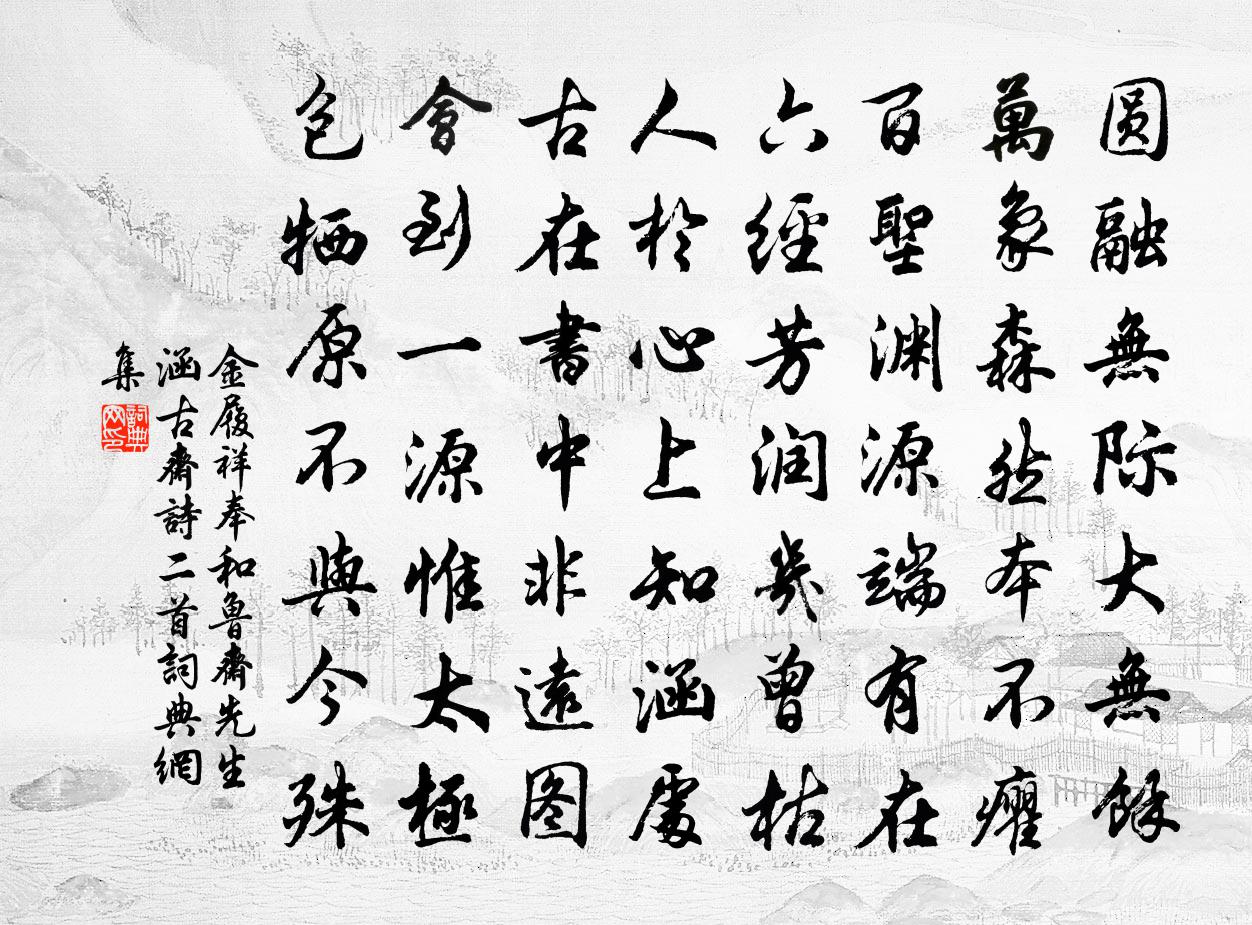 圆融無际大無餘
萬象森然本不癯
百聖渊源端有在
六經芳润幾曾枯
人於心上知涵處
古在書中非遠图
會到一源惟太極
包牺原不與今殊
金履祥奉和魯齋先生
涵古齋詩二首詞典網
集
詞典網印